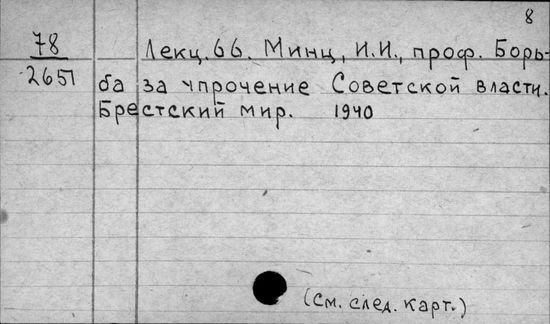 8
78 Лекц. 66. Минц, И.И., проф. Борь-
2651 ба за упрочение Советской власти.
Брестский мир. 1940
(см. след. карт.)